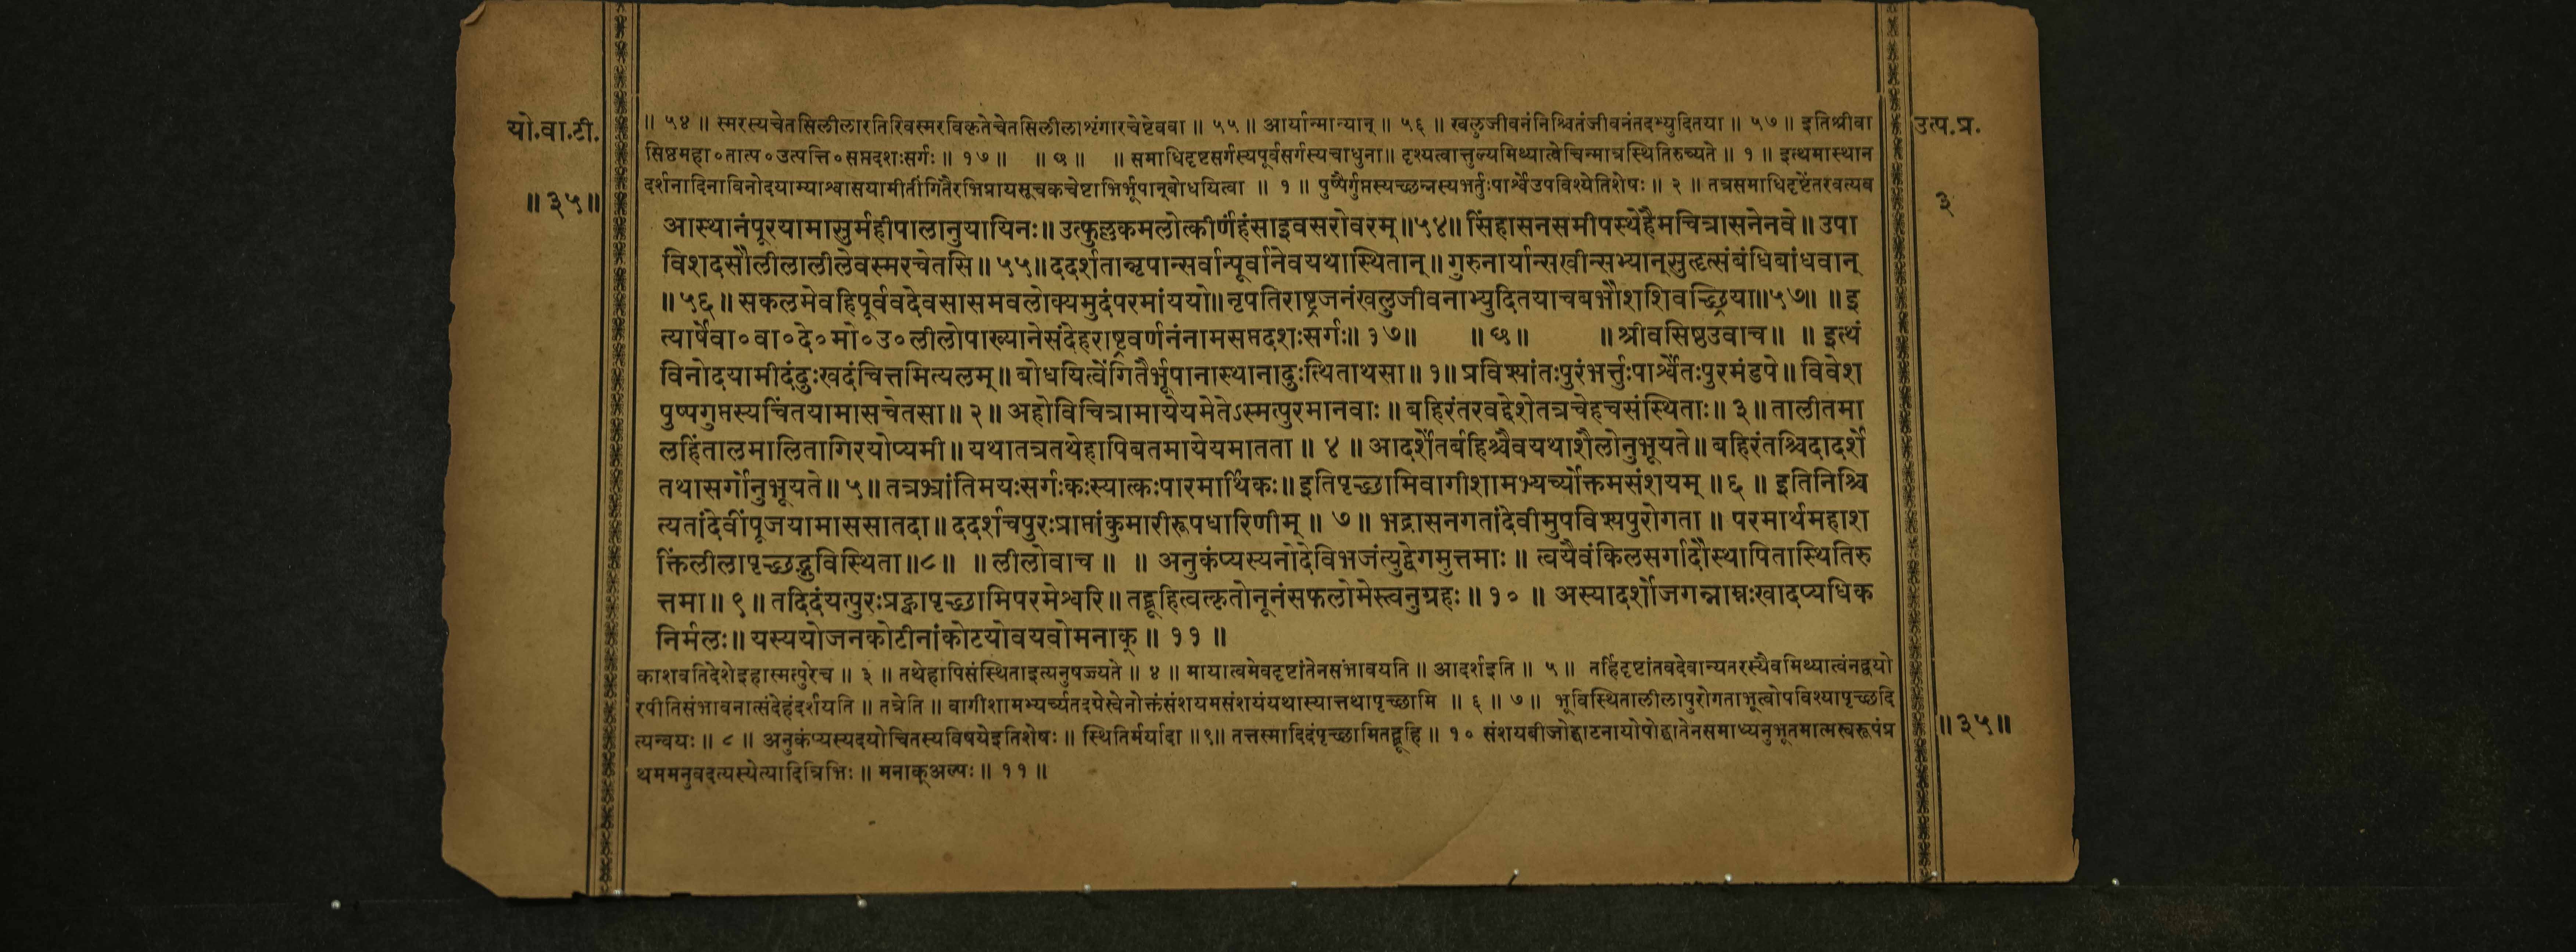 यो.वा.टी.
॥ ३५ ॥
उत्प.प्र.
३
॥ ५४ ॥ स्मरस्यचेतसिलीलारतिरिवस्मरविकृतेचेतसिलीलाशृंगारचेष्टेववा ॥ ५५ ॥ आर्यान्मान्यान् ॥ ५६ ॥ खलुजीवनंनिश्चितंजीवनंतदभ्युदितया ॥ ५७ ॥ इतिश्रीवा
सिष्ठमहा॰तात्प॰उत्पत्ति॰सप्तदशःसर्गः ॥ १७ ॥ ॥ छ ॥ ॥ समाधिदृष्टसर्गस्यपूर्वसर्गस्यचाधुना॥ दृश्यत्वात्तुल्यमिथ्यात्वेचिन्मात्रस्थितिरुच्यते ॥ १ ॥ इत्थमास्थान
दर्शनादिनाविनोदयाम्याश्वासयामीतींगितैरभिप्रायसूचकचेष्टाभिर्भूपान्बोधयित्वा ॥ १ ॥ पुष्पैर्गुप्तस्यच्छन्नस्यभर्तुःपार्श्वेउपविश्येतिशेषः ॥ २ ॥ तत्रसमाधिदृष्टेंतरवत्यव
आस्थानंपूरयामासुर्महीपालानुयायिनः॥ उत्फुल्लकमलोत्कीर्णंहंसाइवसरोवरम् ॥५४॥ सिंहासनसमीपस्थेहैमचित्रासनेनवे ॥ उपा
विशदसौलीलालीलेवस्मरचेतसि ॥ ५५ ॥ ददर्शतान्नृपान्सर्वान्पूर्वानेवयथास्थितान् ॥ गुरुनार्यान्सखीन्सभ्यान्सुहृत्संबंधिबांधवान्
॥ ५६ ॥ सकलमेवहिपूर्ववदेवसासमवलोक्यमुदंपरमांययौ॥ नृपतिराष्ट्रजनंखलुजीवनाभ्युदितयाचबभौशशिवच्छ्रिया॥५७॥ ॥ इ
त्यार्षेवा॰वा॰दे॰मो॰उ॰लीलोपाख्यानेसंदेहराष्ट्रवर्णनंनामसप्तदशःसर्गः॥ १७॥ ॥ छ ॥ ॥ श्रीवसिष्ठउवाच ॥ ॥ इत्थं
विनोदयामीदंदुःखदंचित्तमित्यलम् ॥ बोधयित्वेंगितैर्भूपानास्थानादुत्थिताथसा ॥ १॥ प्रविश्यांतःपुरंभर्त्तुःपार्श्वेंतःपुरमंडपे ॥ विवेश
पुष्पगुप्तस्यचिंतयामासचेतसा ॥ २ ॥ अहोविचित्रामायेयमेतेऽस्मत्पुरमानवाः ॥ बहिरंतरवद्देशेतत्रचेहचसंस्थिताः॥ ३ ॥ तालीतमा
लहिंतालमालितागिरयोप्यमी ॥ यथातत्रतथेहापिबतमायेयमातता ॥ ४ ॥ आदर्शेंतर्बहिश्चैवयथाशैलोनुभूयते ॥ बहिरंतश्चिदादर्शे
तथासर्गोनुभूयते ॥ ५ ॥ तत्रभ्रांतिमयःसर्गःकःस्यात्कःपारमार्थिकः॥ इतिपृच्छामिवागीशामभ्यर्च्योक्तमसंशयम् ॥ ६ ॥ इतिनिश्चि
त्यतांदेवींपूजयामाससातदा ॥ ददर्शचपुरःप्राप्तांकुमारीरूपधारिणीम् ॥ ७ ॥ भद्रासनगतांदेवीमुपविश्यपुरोगता ॥ परमार्थमहाश
क्तिंलीलापृच्छद्भुविस्थिता ॥८॥ ॥ लीलोवाच ॥ ॥ अनुकंप्यस्यनोदेविभजंत्युद्वेगमुत्तमाः ॥ त्वयैवंकिलसर्गादौस्थापितास्थितिरु
त्तमा ॥ ९ ॥ तदिदंयत्पुरःप्रह्वापृच्छामिपरमेश्वरि ॥ तद्ब्रूहित्वत्कृतोनूनंसफलोमेस्त्वनुग्रहः ॥ १० ॥ अस्यादर्शोजगन्नाम्नःखादप्यधिक
निर्मलः॥ यस्ययोजनकोटीनांकोटयोवयवोमनाक् ॥ ११ ॥
काशवतिदेशेइहास्मत्पुरेच ॥ ३ ॥ तथेहापिसंस्थिताइत्यनुषज्यते ॥ ४ ॥ मायात्वमेवदृष्टांतेनसंभावयति ॥ आदर्शइति ॥ ५ ॥ तर्हिदृष्टांतवदेवान्यतरस्यैवमिथ्यात्वंनद्वयो
रपीतिसंभावनात्संदेहंदर्शयति ॥ तत्रेति ॥ वागीशामभ्यर्च्यतदग्रेस्वेनोक्तंसंशयमसंशयंयथास्यात्तथापृच्छामि ॥ ६ ॥ ७ ॥ भूविस्थितालीलापुरोगताभूत्वोपविश्यापृच्छदि
त्यन्वयः ॥ ८ ॥ अनुकंप्यस्यदयोचितस्यविषयेइतिशेषः ॥ स्थितिर्मर्यादा ॥९॥ तत्तस्मादिदंपृच्छामितद्ब्रूहि ॥ १० संशयबीजोद्घाटनायोपोद्घातेनसमाध्यनुभूतमात्मस्वरूपंप्र
थममनुवदत्यस्येत्यादित्रिभिः ॥ मनाक्अल्पः ॥ ११ ॥
॥ ३५ ॥